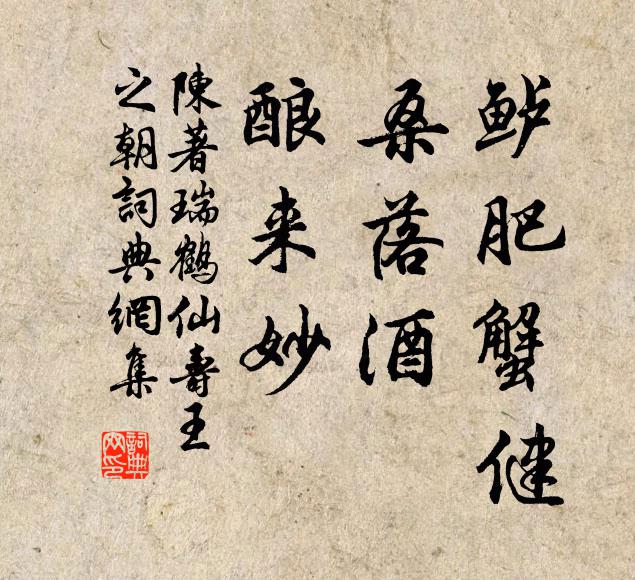 鲈肥蟹健
桑落酒
酿来妙
陳著瑞鶴仙壽王
之朝詞典網集
詞典网印